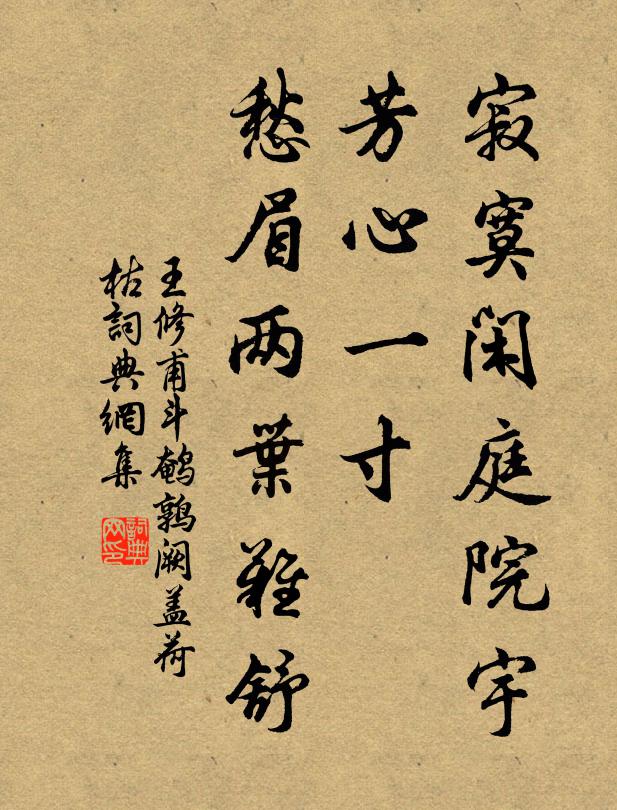 寂寞闲庭院宇
芳心一寸
愁眉两葉难舒
王修甫斗鹌鹑阙盖荷
枯詞典網集
詞典网印